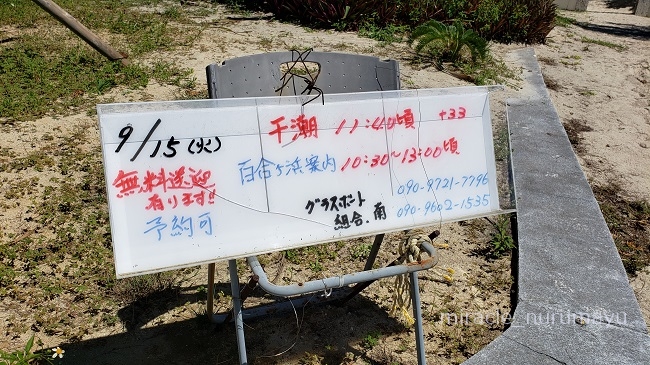 9/15(火)
干潮 11:40頃 +33
百合ヶ浜案内 10:30~13:00頃
無料送迎
有ります!!
予約可
グラスボート
組合.南
090-9721-7796
090-9602-1535
miracle_nurumayu